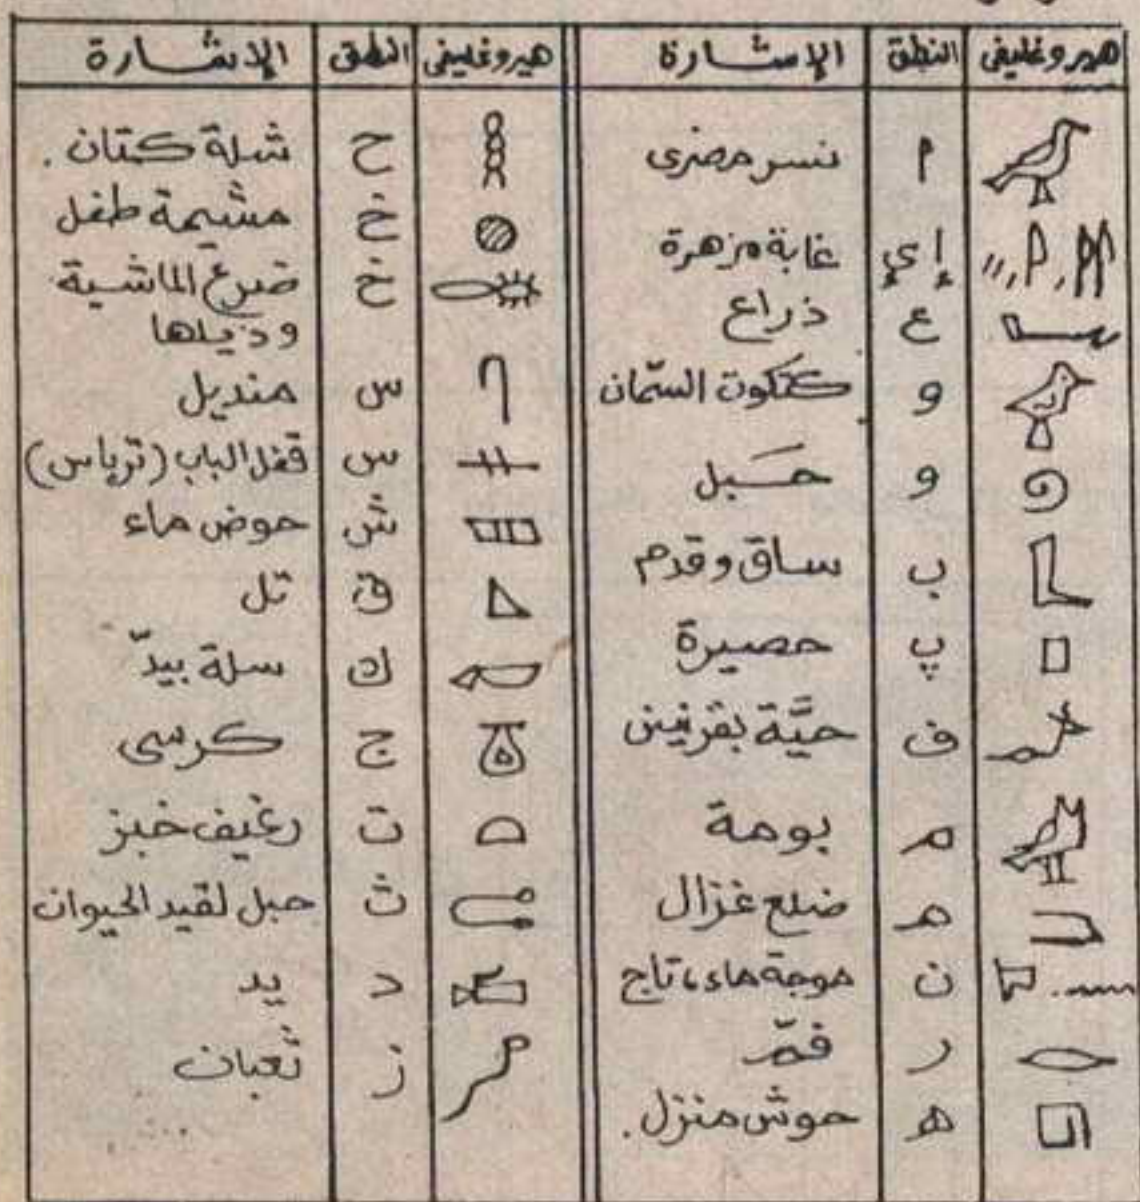 هيروغليفى النطق الإشارة
أ نسر مصرى
إ ي غابة مزهرة
ع ذراع
و كتكوت السمّان
و حَبل
ب ساق وقدم
پ حصيرة
ف حيَّة بقرنين
م بومة
م ضلع غزال
ن موجة ماء، تاج
ر فمّ
ه حوش منزل.
هيروغليفى النطق الإشارة
ح شلة كتان.
خ مشيمة طفل
خ ضرع الماشية
وذيلها
س منديل
س قفل الباب (ترباس)
ش حوض ماء
ق تل
ك سلة بيدّ
ج كرسى
ت رغيف خبز
ث حبل لقيد الحيوان
د يد
ز ثعبان